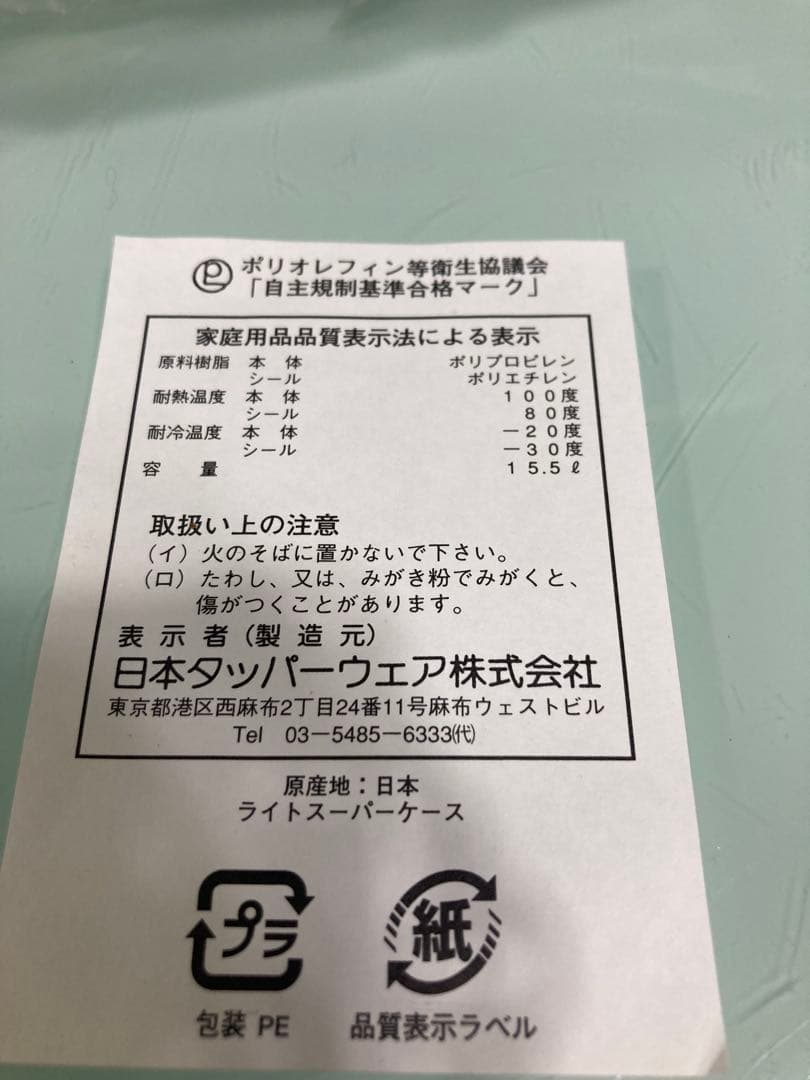 ポリオレフィン等衛生協議会
「自主規制基準合格マーク」
家庭用品品質表示法による表示
原料樹脂 本体 ポリプロピレン
シール ポリエチレン
耐熱温度 本体 100度
シール 80度
耐冷温度 本体 −20度
シール −30度
容量 15.5ℓ
取扱い上の注意
(イ)火のそばに置かないで下さい。
(ロ)たわし、又は、みがき粉でみがくと、
傷がつくことがあります。
表示者(製造元)
日本タッパーウェア株式会社
東京都港区西麻布2丁目24番11号麻布ウェストビル
Tel 03−5485−6333㈹
原産地:日本
ライトスーパーケース
プラ 紙
包装 PE 品質表示ラベル